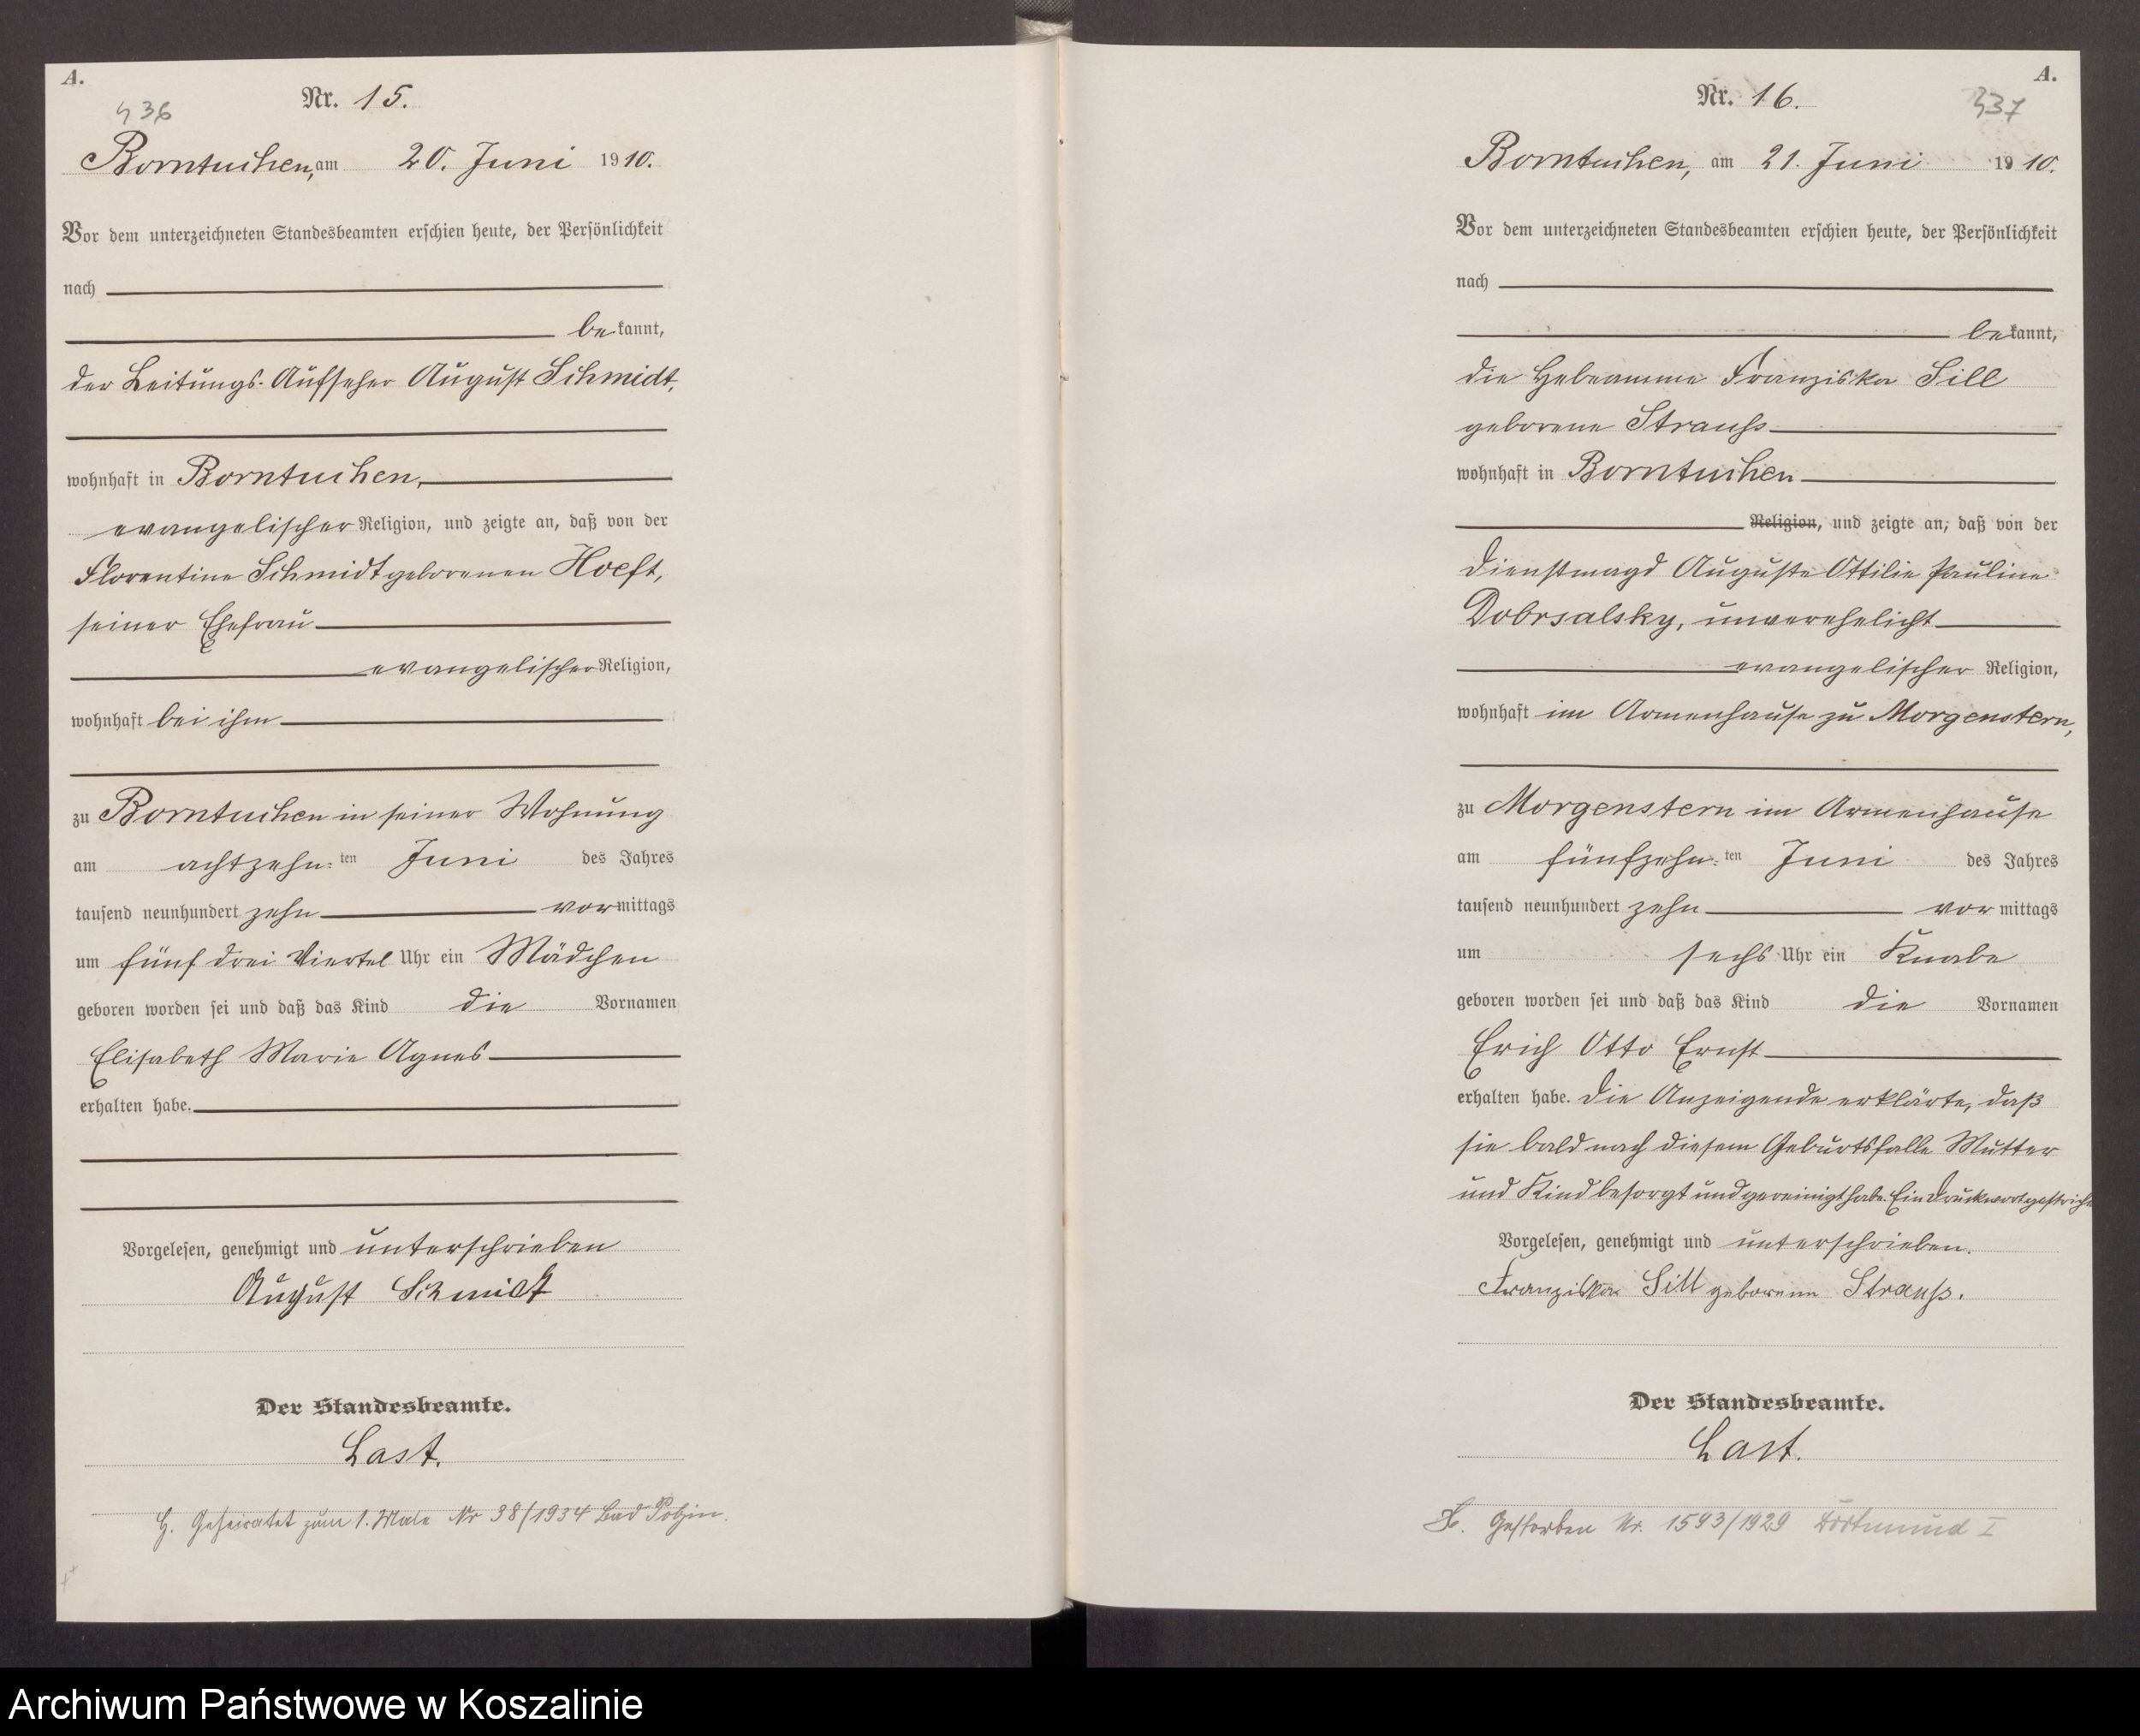 A.
436
Nr. 15.
Borntuchen, am 20. Juni 1910.
Vor dem unterzeichneten Standesbeamten erschien heute, der Persönlichkeit
nach
bekannt,
der Leitungs-Aufseher August Schmidt,
wohnhaft in Borntuchen,
evangelischer Religion, und zeigte an, daß von der
Florentine Schmidt geborenen Hoeft,
seiner Ehefrau
evangelischer Religion,
wohnhaft bei ihm
zu Borntuchen in seiner Wohnung
am achtzehn-ten Juni des Jahres
tausend neunhundert zehn vormittags
um fünf drei Viertel Uhr ein Mädchen
geboren worden sei und daß das Kind die Vornamen
Elisabeth Marie Agnes
erhalten habe.
Vorgelesen, genehmigt und unterschrieben
August Schmidt
Der Standesbeamte.
Last.
H. Geheiratet zum 1. Male Nr 38/1934 Bad Polzin.
A.
437
Nr. 16.
Borntuchen, am 21. Juni 1910.
Vor dem unterzeichneten Standesbeamten erschien heute, der Persönlichkeit
nach
bekannt,
die Hebeamme Franziska Sill
geborene Strauß
wohnhaft in Borntuchen
Religion, und zeigte an, daß von der
Dienstmagd Auguste Ottilie Pauline
Dobrsalsky, unverehelicht
evangelischer Religion,
wohnhaft im Armenhause zu Morgenstern,
zu Morgenstern im Armenhause
am fünfzehn-ten Juni des Jahres
tausend neunhundert zehn vormittags
um sechs Uhr ein Knabe
geboren worden sei und daß das Kind die Vornamen
Erich Otto Ernst
erhalten habe. Die Anzeigende erklärte, daß
sie bald nach diesem Geburtsfalle Mutter
und Kind besorgt und gereinigt habe. Ein Druckwort gestrichen
Vorgelesen, genehmigt und unterschrieben.
Franziska Sill geborene Strauß.
Der Standesbeamte.
Last.
Gestorben Nr. 1593/1929 Dortmund I
Archiwum Państwowe w Koszalinie